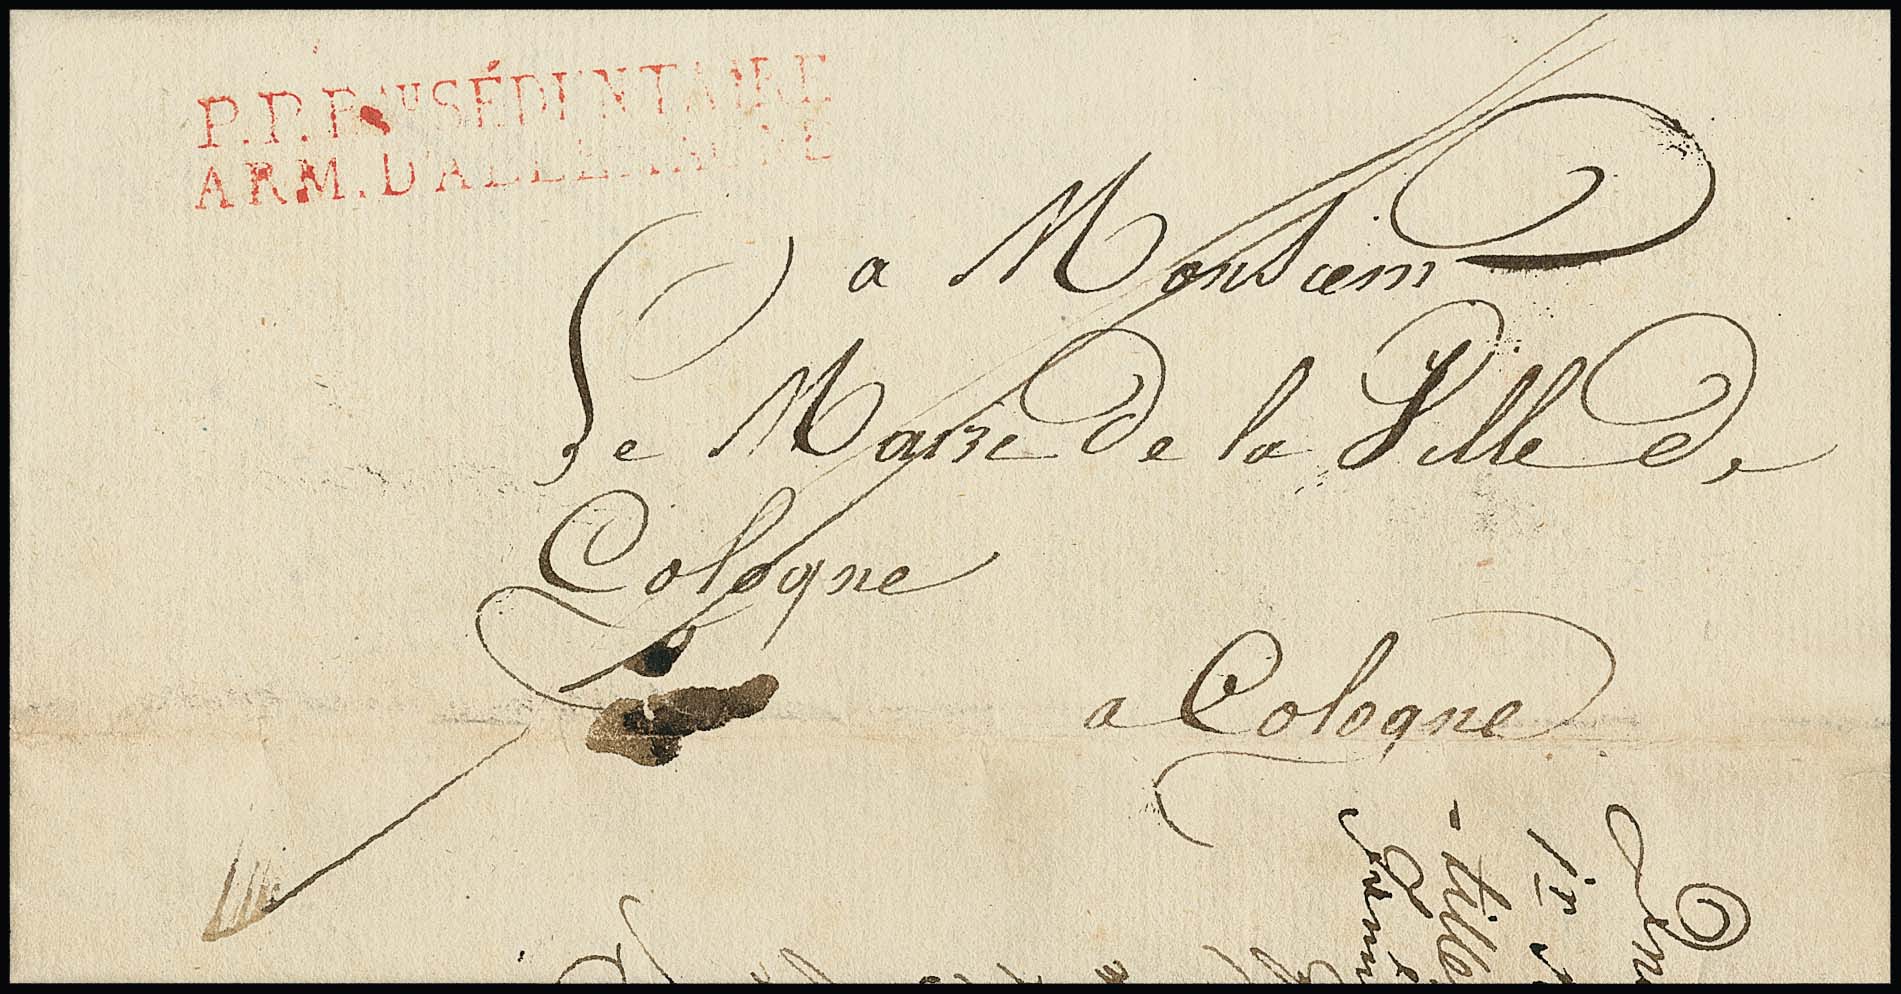 P.P.BAU SÉDENTAIRE
ARM. D'ALLEMAGNE
a Monsieur
Le Maire de la Ville de
Cologne
a Cologne